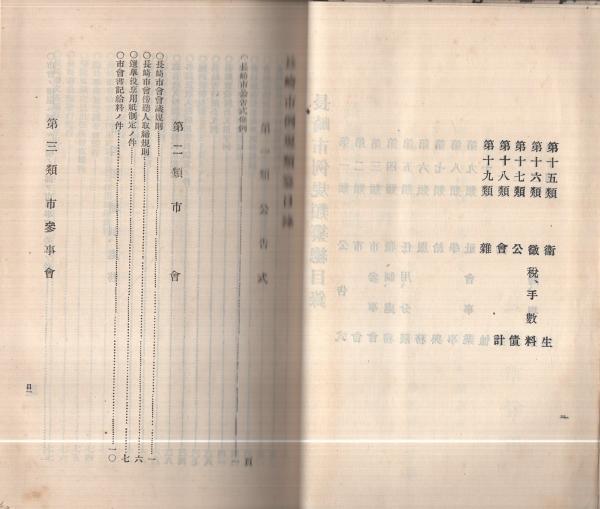 第十五類 衞生
第十六類 徵稅、手數料
第十七類 公債
第十八類 會計
第十九類 雜
二
長崎市例規類纂目錄
頁
第一類 公吿式
○長崎市公吿式條例
第二類 市會
○長崎市會會議規則 一
○長崎市會傍聽人取締規則 六
○選擧投票用紙制定ノ件 七
○市會書記給料ノ件 一〇
第三類 市參事會
目一